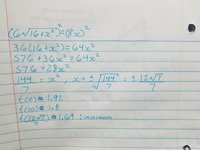 (6√16+x²)²=(8x)²
36(16+x²)=64x²
576+36x²=64x²
576=28x²
144/7 = x², x=±√144/7 = ±12√7/7
t(0)≈1.92
t(10)≈1.8
t(12√7/7)≈1.69 : minimum